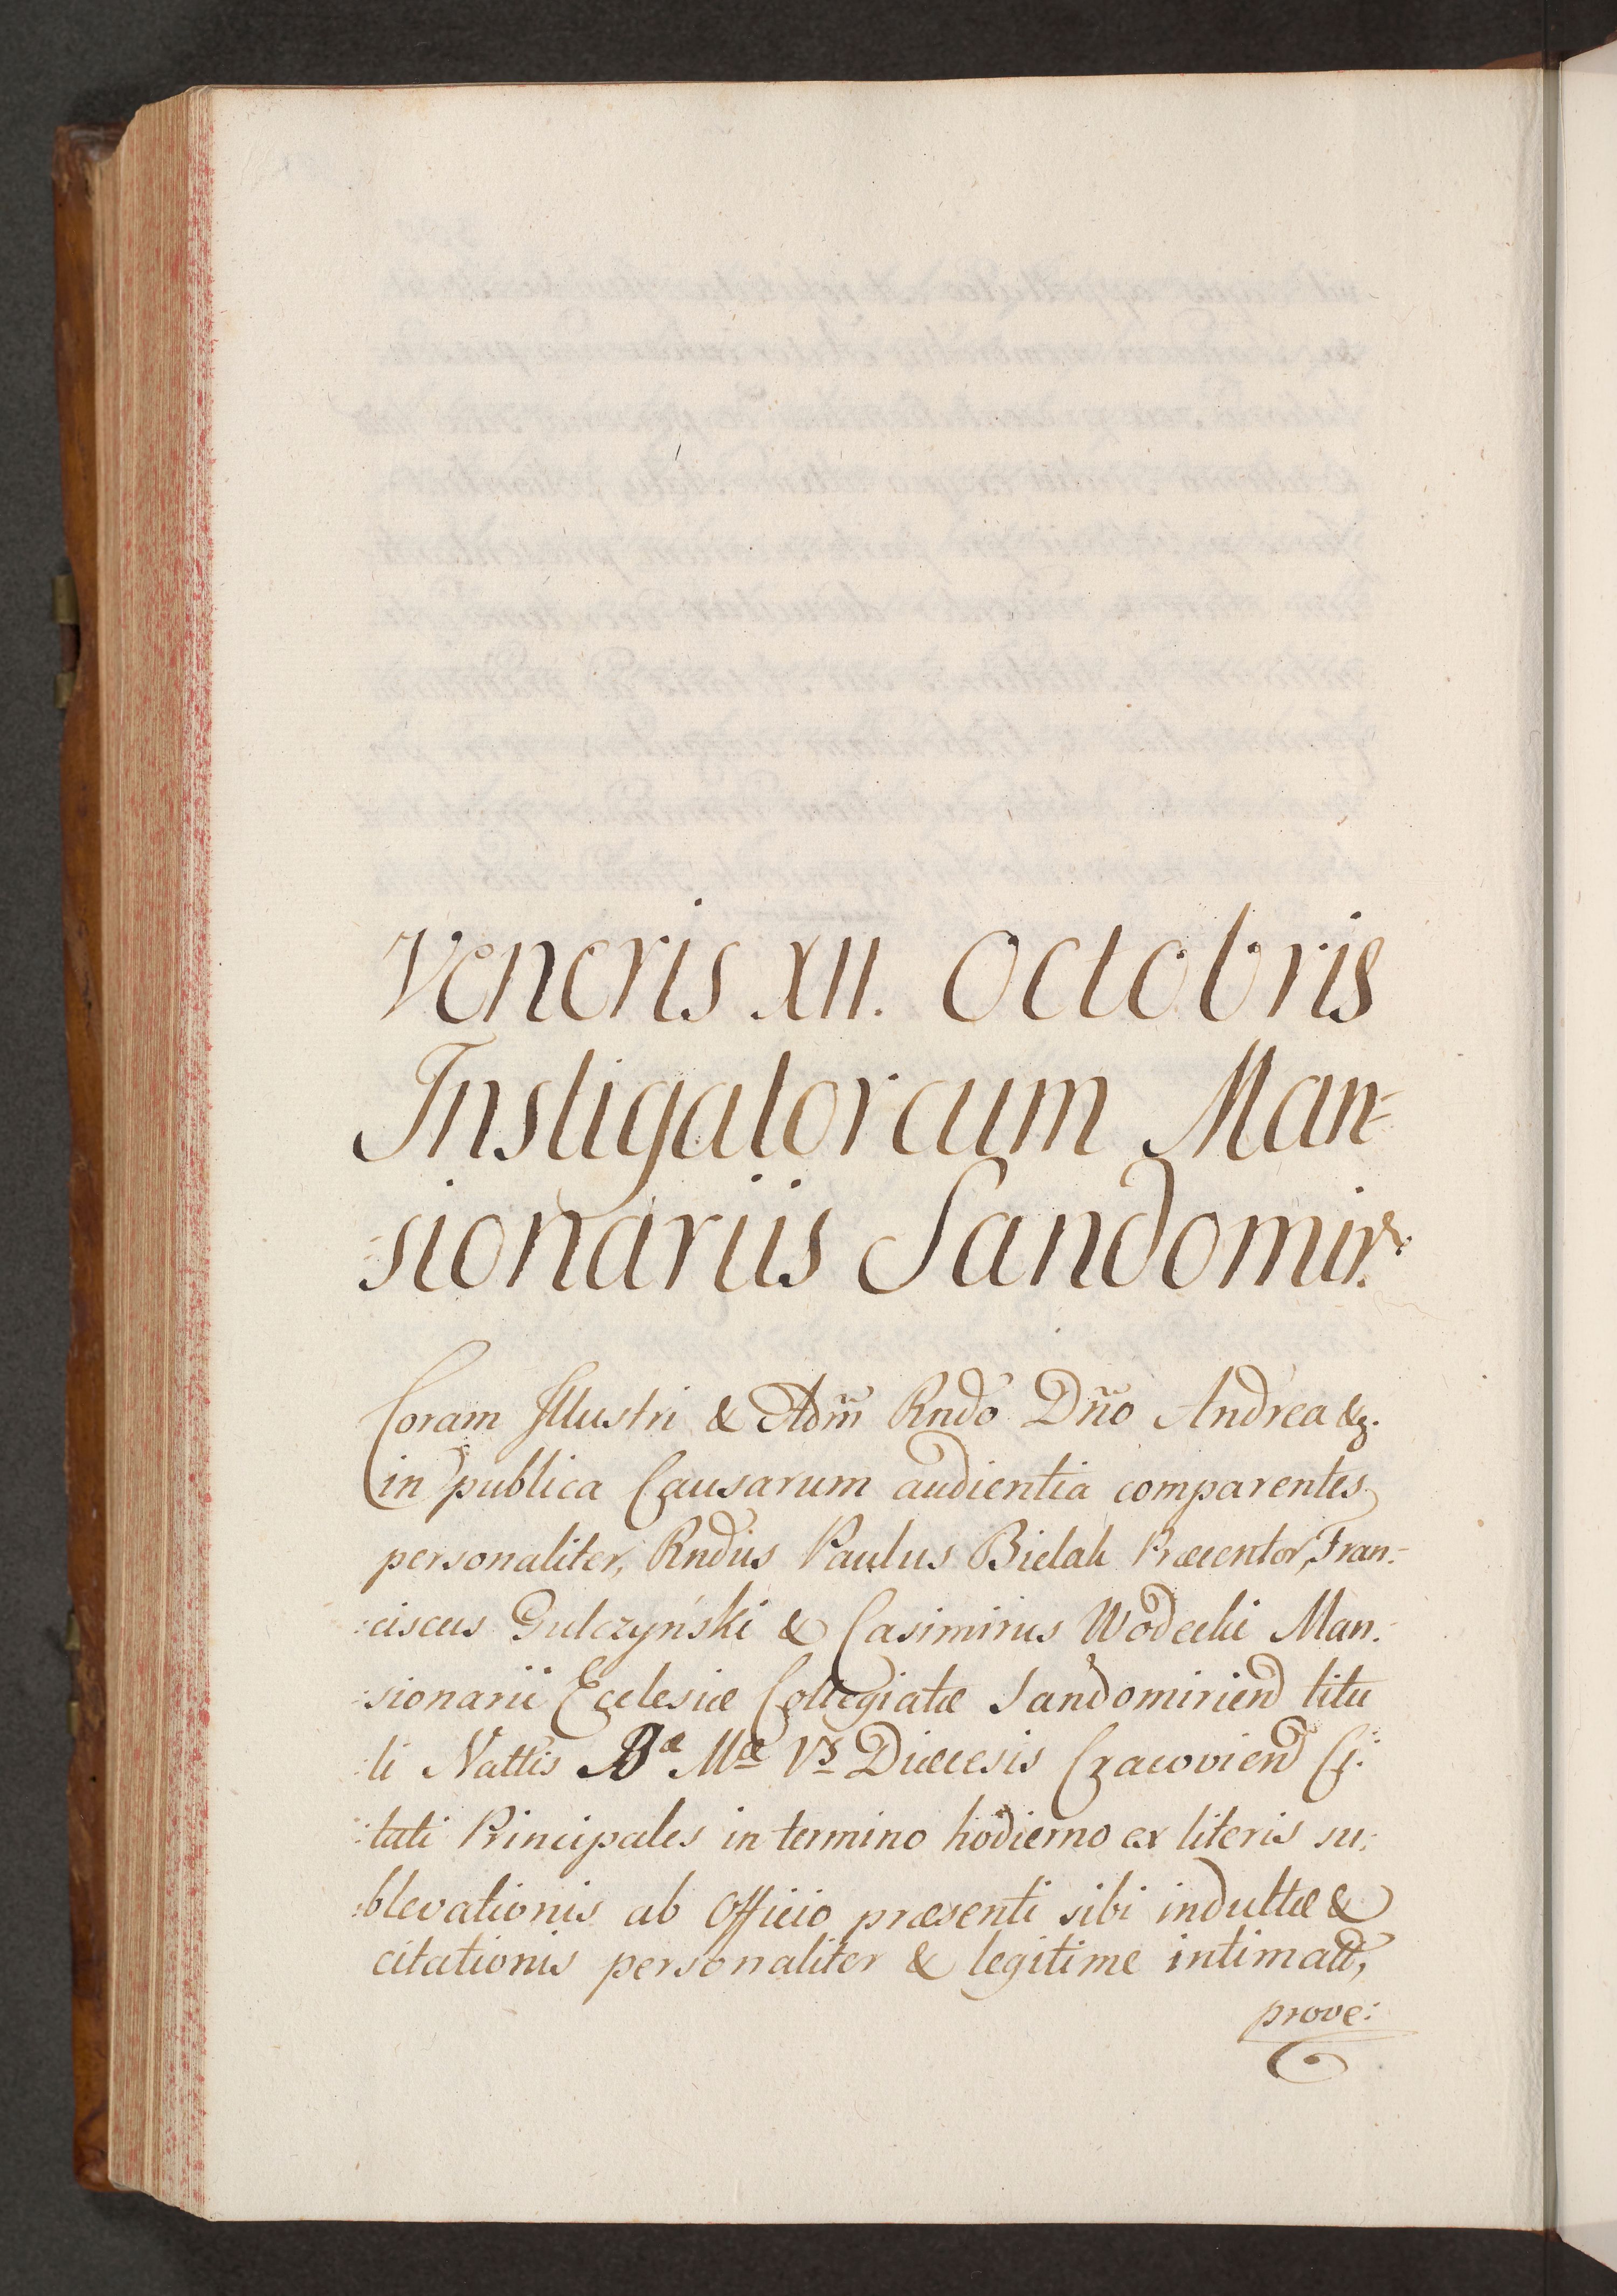 Veneris XII. Octobris
Instigator cum Man=
=sionariis Sandomir:
Coram Illustri & Adm̃ Rndo Dño Andrea &c.
in publica Causarum audientia comparentes
personaliter, Rndus Paulus Bielak Præcentor, Fran=
:ciscus Gulczyński & Casimirus Wodecki Man=
:sionarii Ecclesiæ Collegiatæ Sandomirien titu
:li Nattis Bæ Mæ Vs Diæcesis Cracovien Ci:
:tati Principales in termino hodierno ex literis su:
:blevationis ab Officio præsenti sibi indultæ &
citationis personaliter & legitime intimatt,
prove: